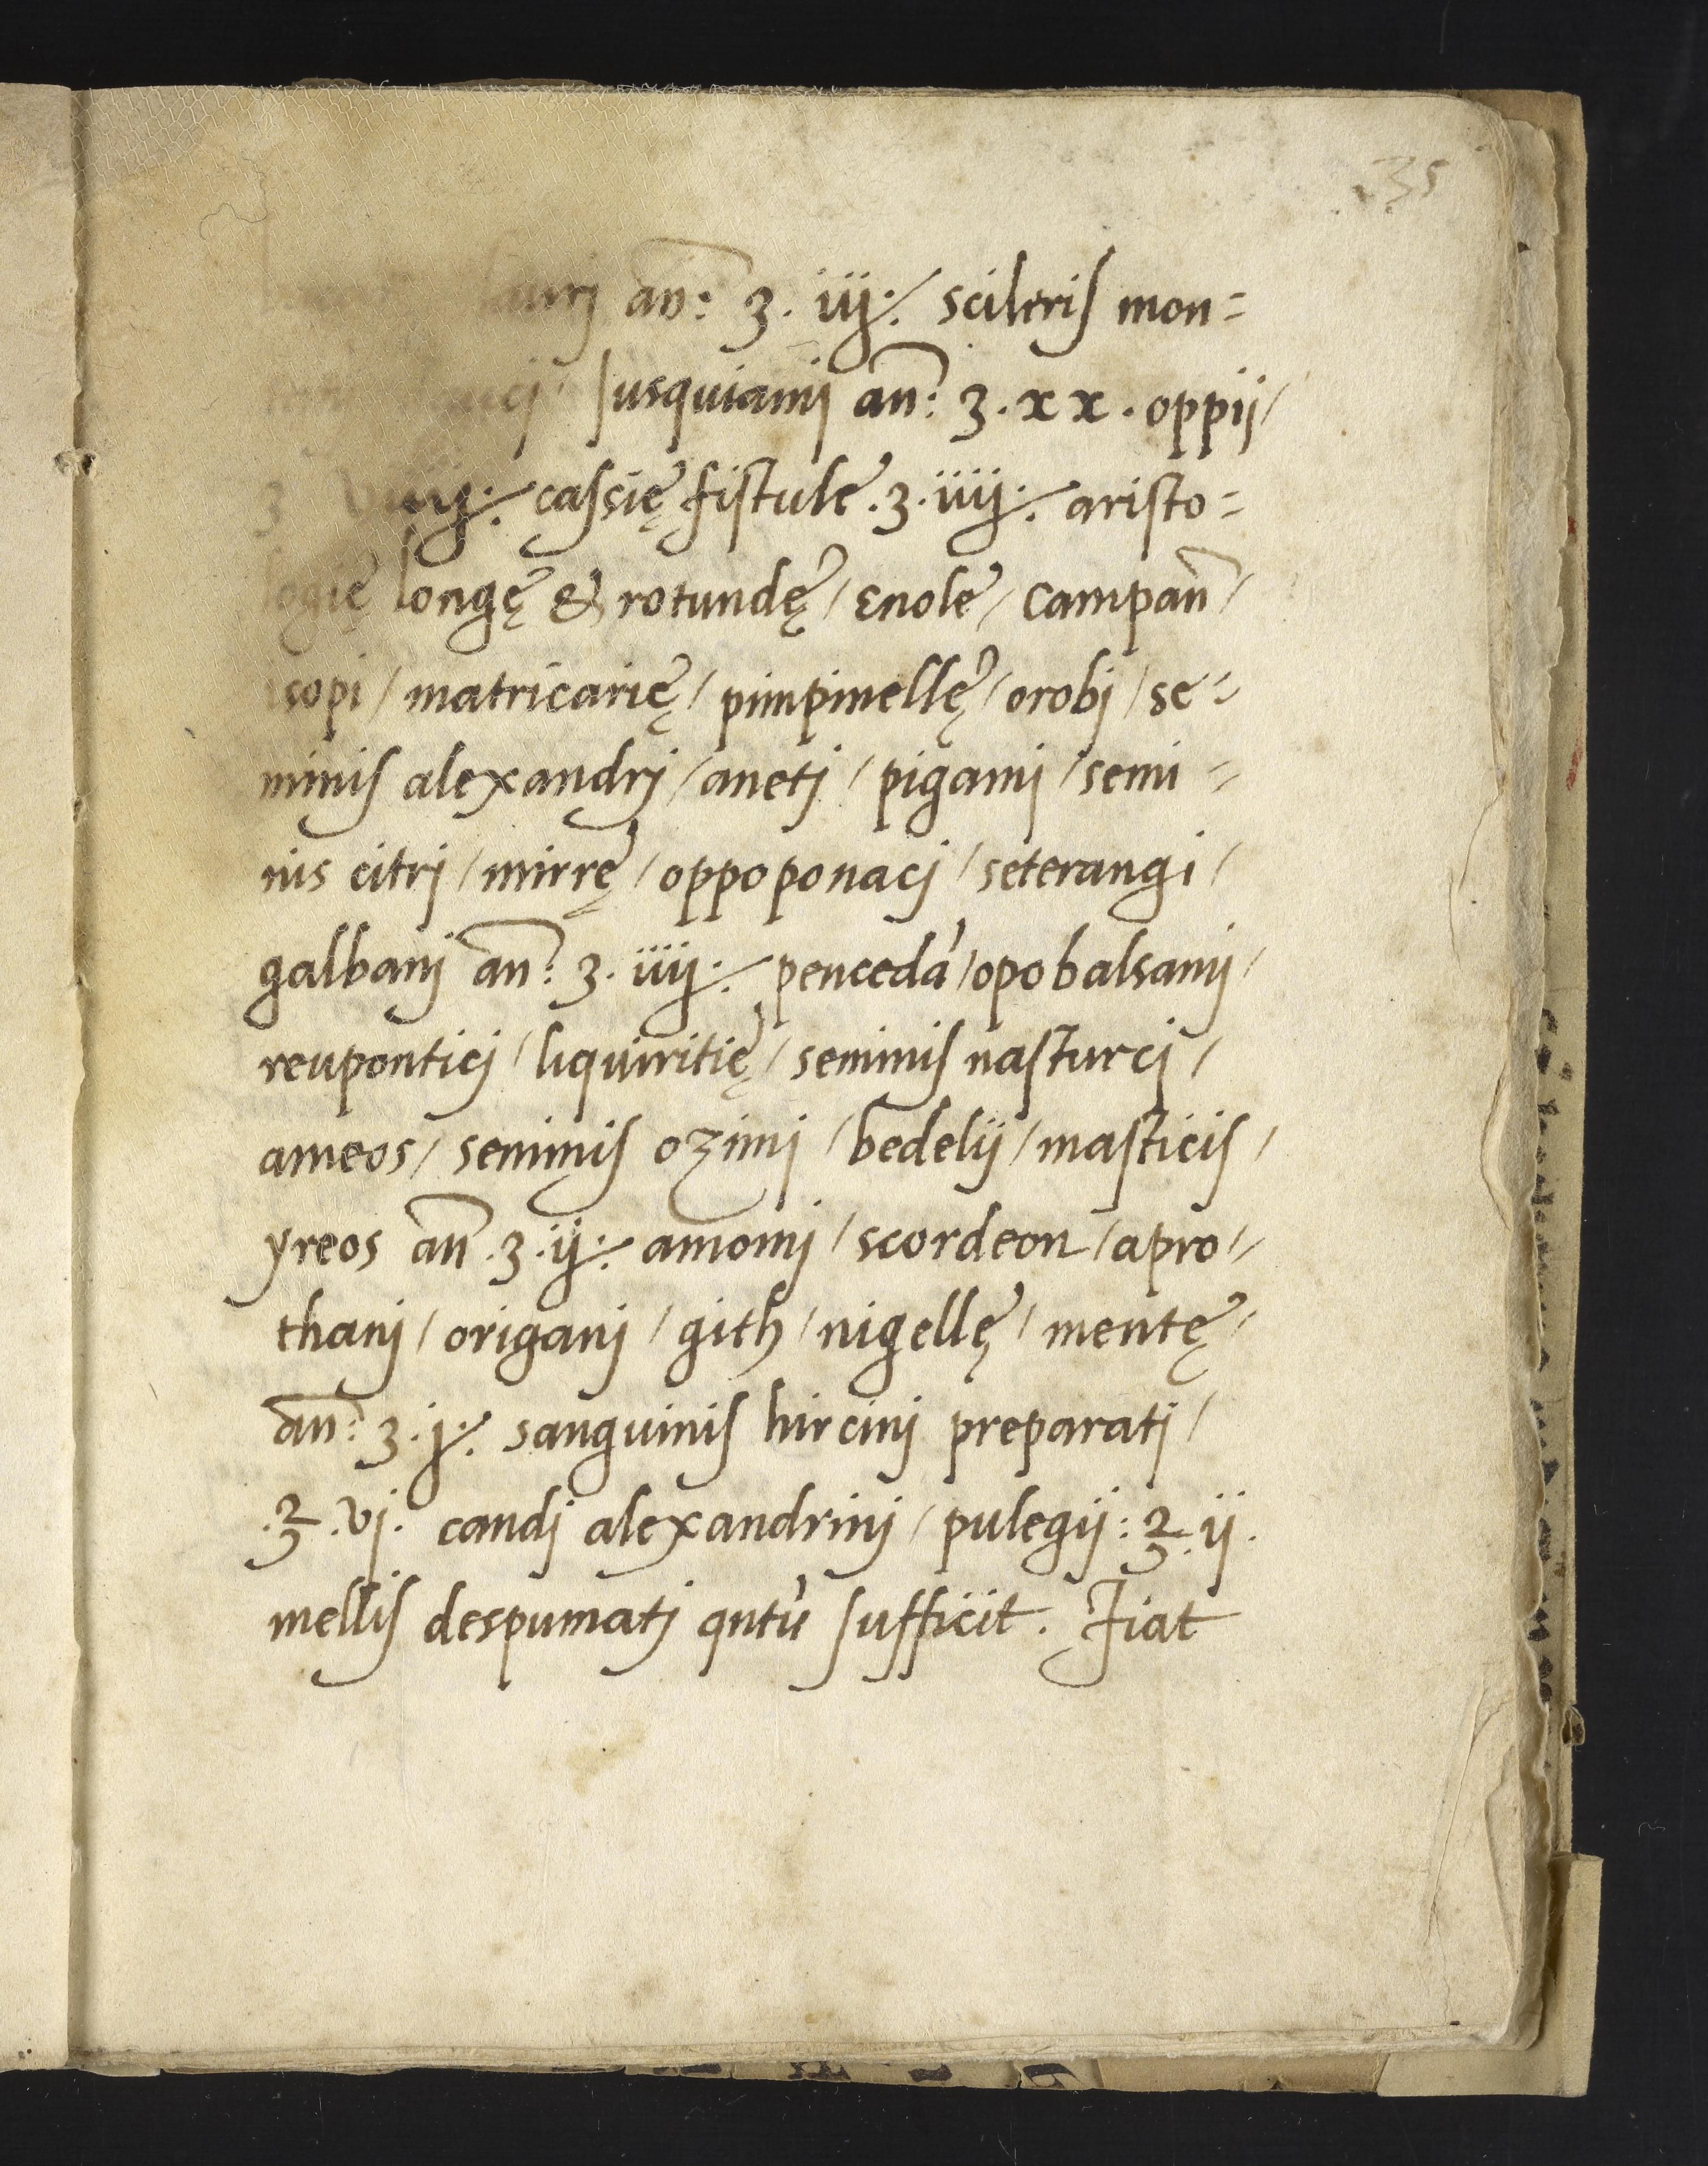 35
an̄: ʒ. iij:/ scileriſ mon=
Iusquiamj an̄: ʒ. xx. oppij/
ʒ caſsię fiſtule. ʒ. iiij:/ ariſto=
logię longę & rotundę/ enole/ campan̄/
isopi/ matricarię/ pimpinellę/ orobj/ se=
miniſ alexandrj/ anetj/ pigamj/ semi=
nis citrj/ mirrę/ oppoponacj/ seterangi/
galbanj an̄: ʒ. iiij:/ penceda'/ opobalsamj/
reuponticj/ liquiritię/ seminiſ naſturcj/
ameos/ seminiſ ozimj/ bedelij/ maſticiſ/
yreos an̄. ʒ. ij:/ amomj/ scordeon/ apro=
thanj/ origanj/ gith/ nigellę/ mentę/
an̄: ʒ. j:/ sanguiniſ hircinj preparatj/
.℥. vj. candj alexandrinj/ pulegij: ℥. ij.
melliſ despumatj qntu' ſufficit. Fiat